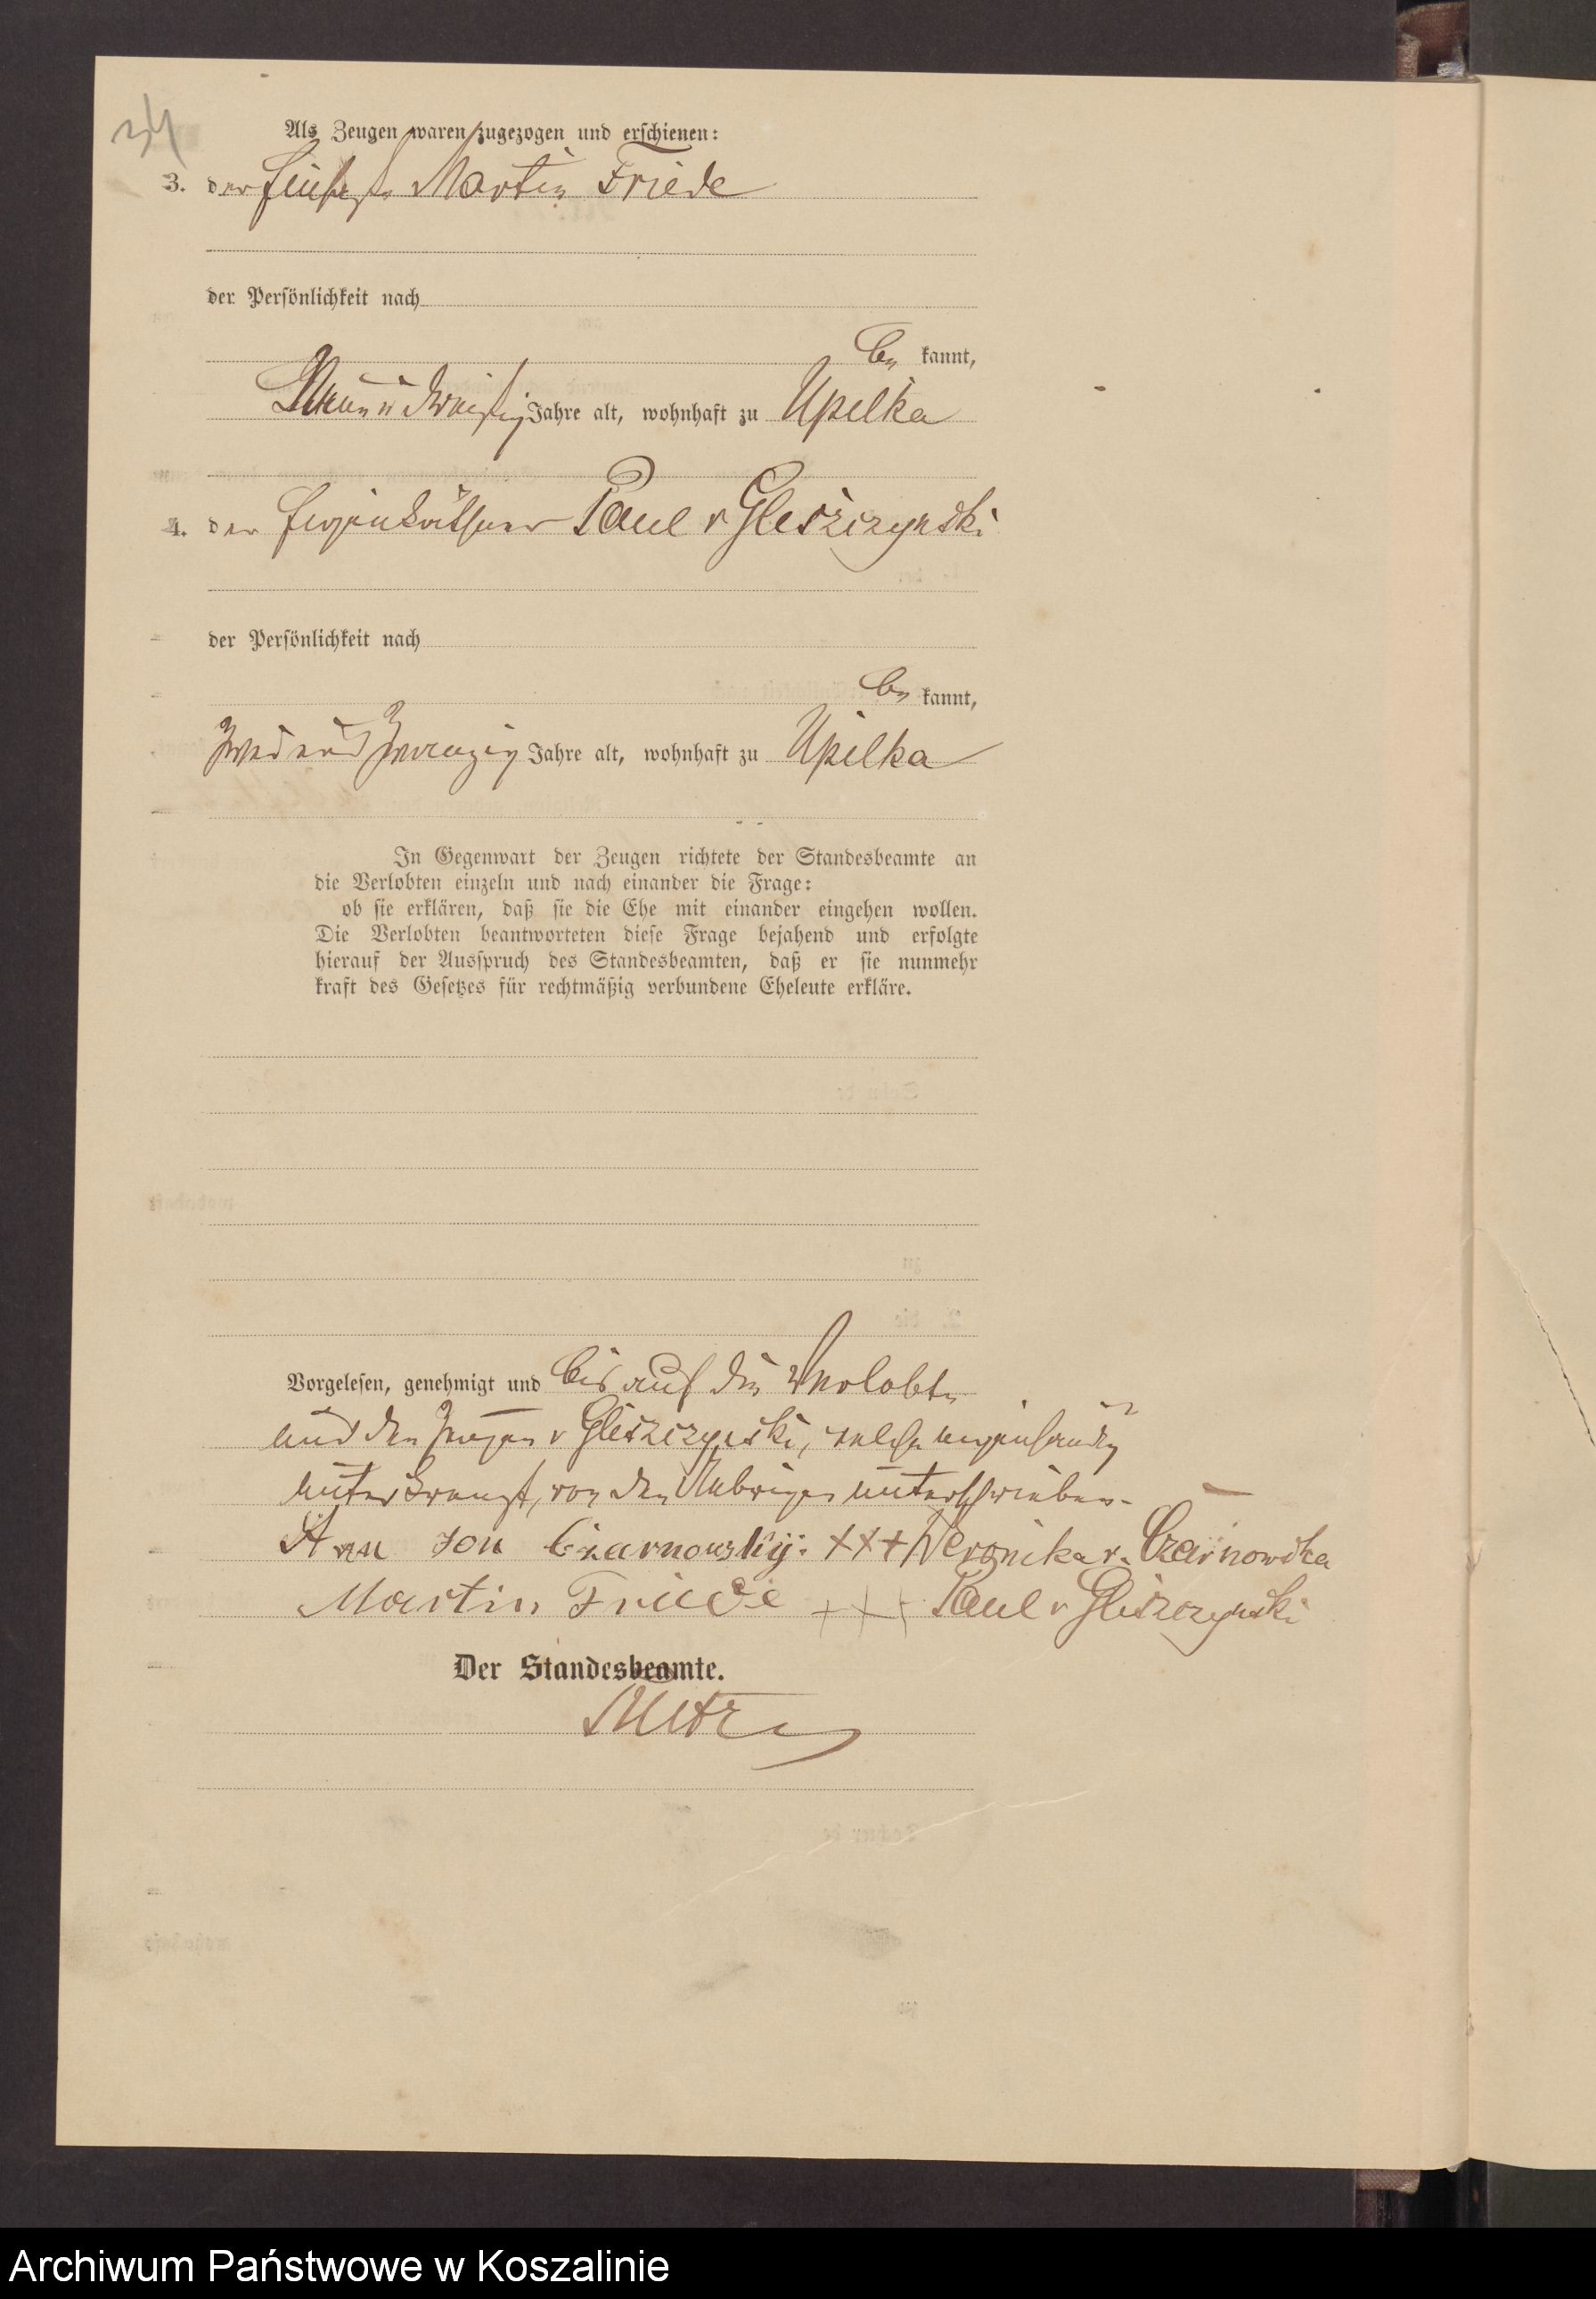 34
Als Zeugen waren zugezogen und erschienen:
3. der Martin Friede
der Persönlichkeit nach
be kannt,
Jahre alt, wohnhaft zu Upilka
4. der Eigenkäthner Paul v Gliszczynski
der Persönlichkeit nach
be kannt,
zwei und zwanzig Jahre alt, wohnhaft zu Upilka
In Gegenwart der Zeugen richtete der Standesbeamte an
die Verlobten einzeln und nach einander die Frage:
ob sie erklären, daß sie die Ehe mit einander eingehen wollen.
Die Verlobten beantworteten diese Frage bejahend und erfolgte
hierauf der Ausspruch des Standesbeamten, daß er sie nunmehr
kraft des Gesetzes für rechtmäßig verbundene Eheleute erkläre.
Vorgelesen, genehmigt und bis auf die Verlobte
und den Zeugen v Gliszczynski, welche eigenhändig
unterkreuzt, von den Uebrigen unterschrieben.
von Czarnowsky. +++ Weronika v. Czarnowska
Martin Friede +++ Paul v Gliszczynski
Der Standesbeamte.
Archiwum Państwowe w Koszalinie